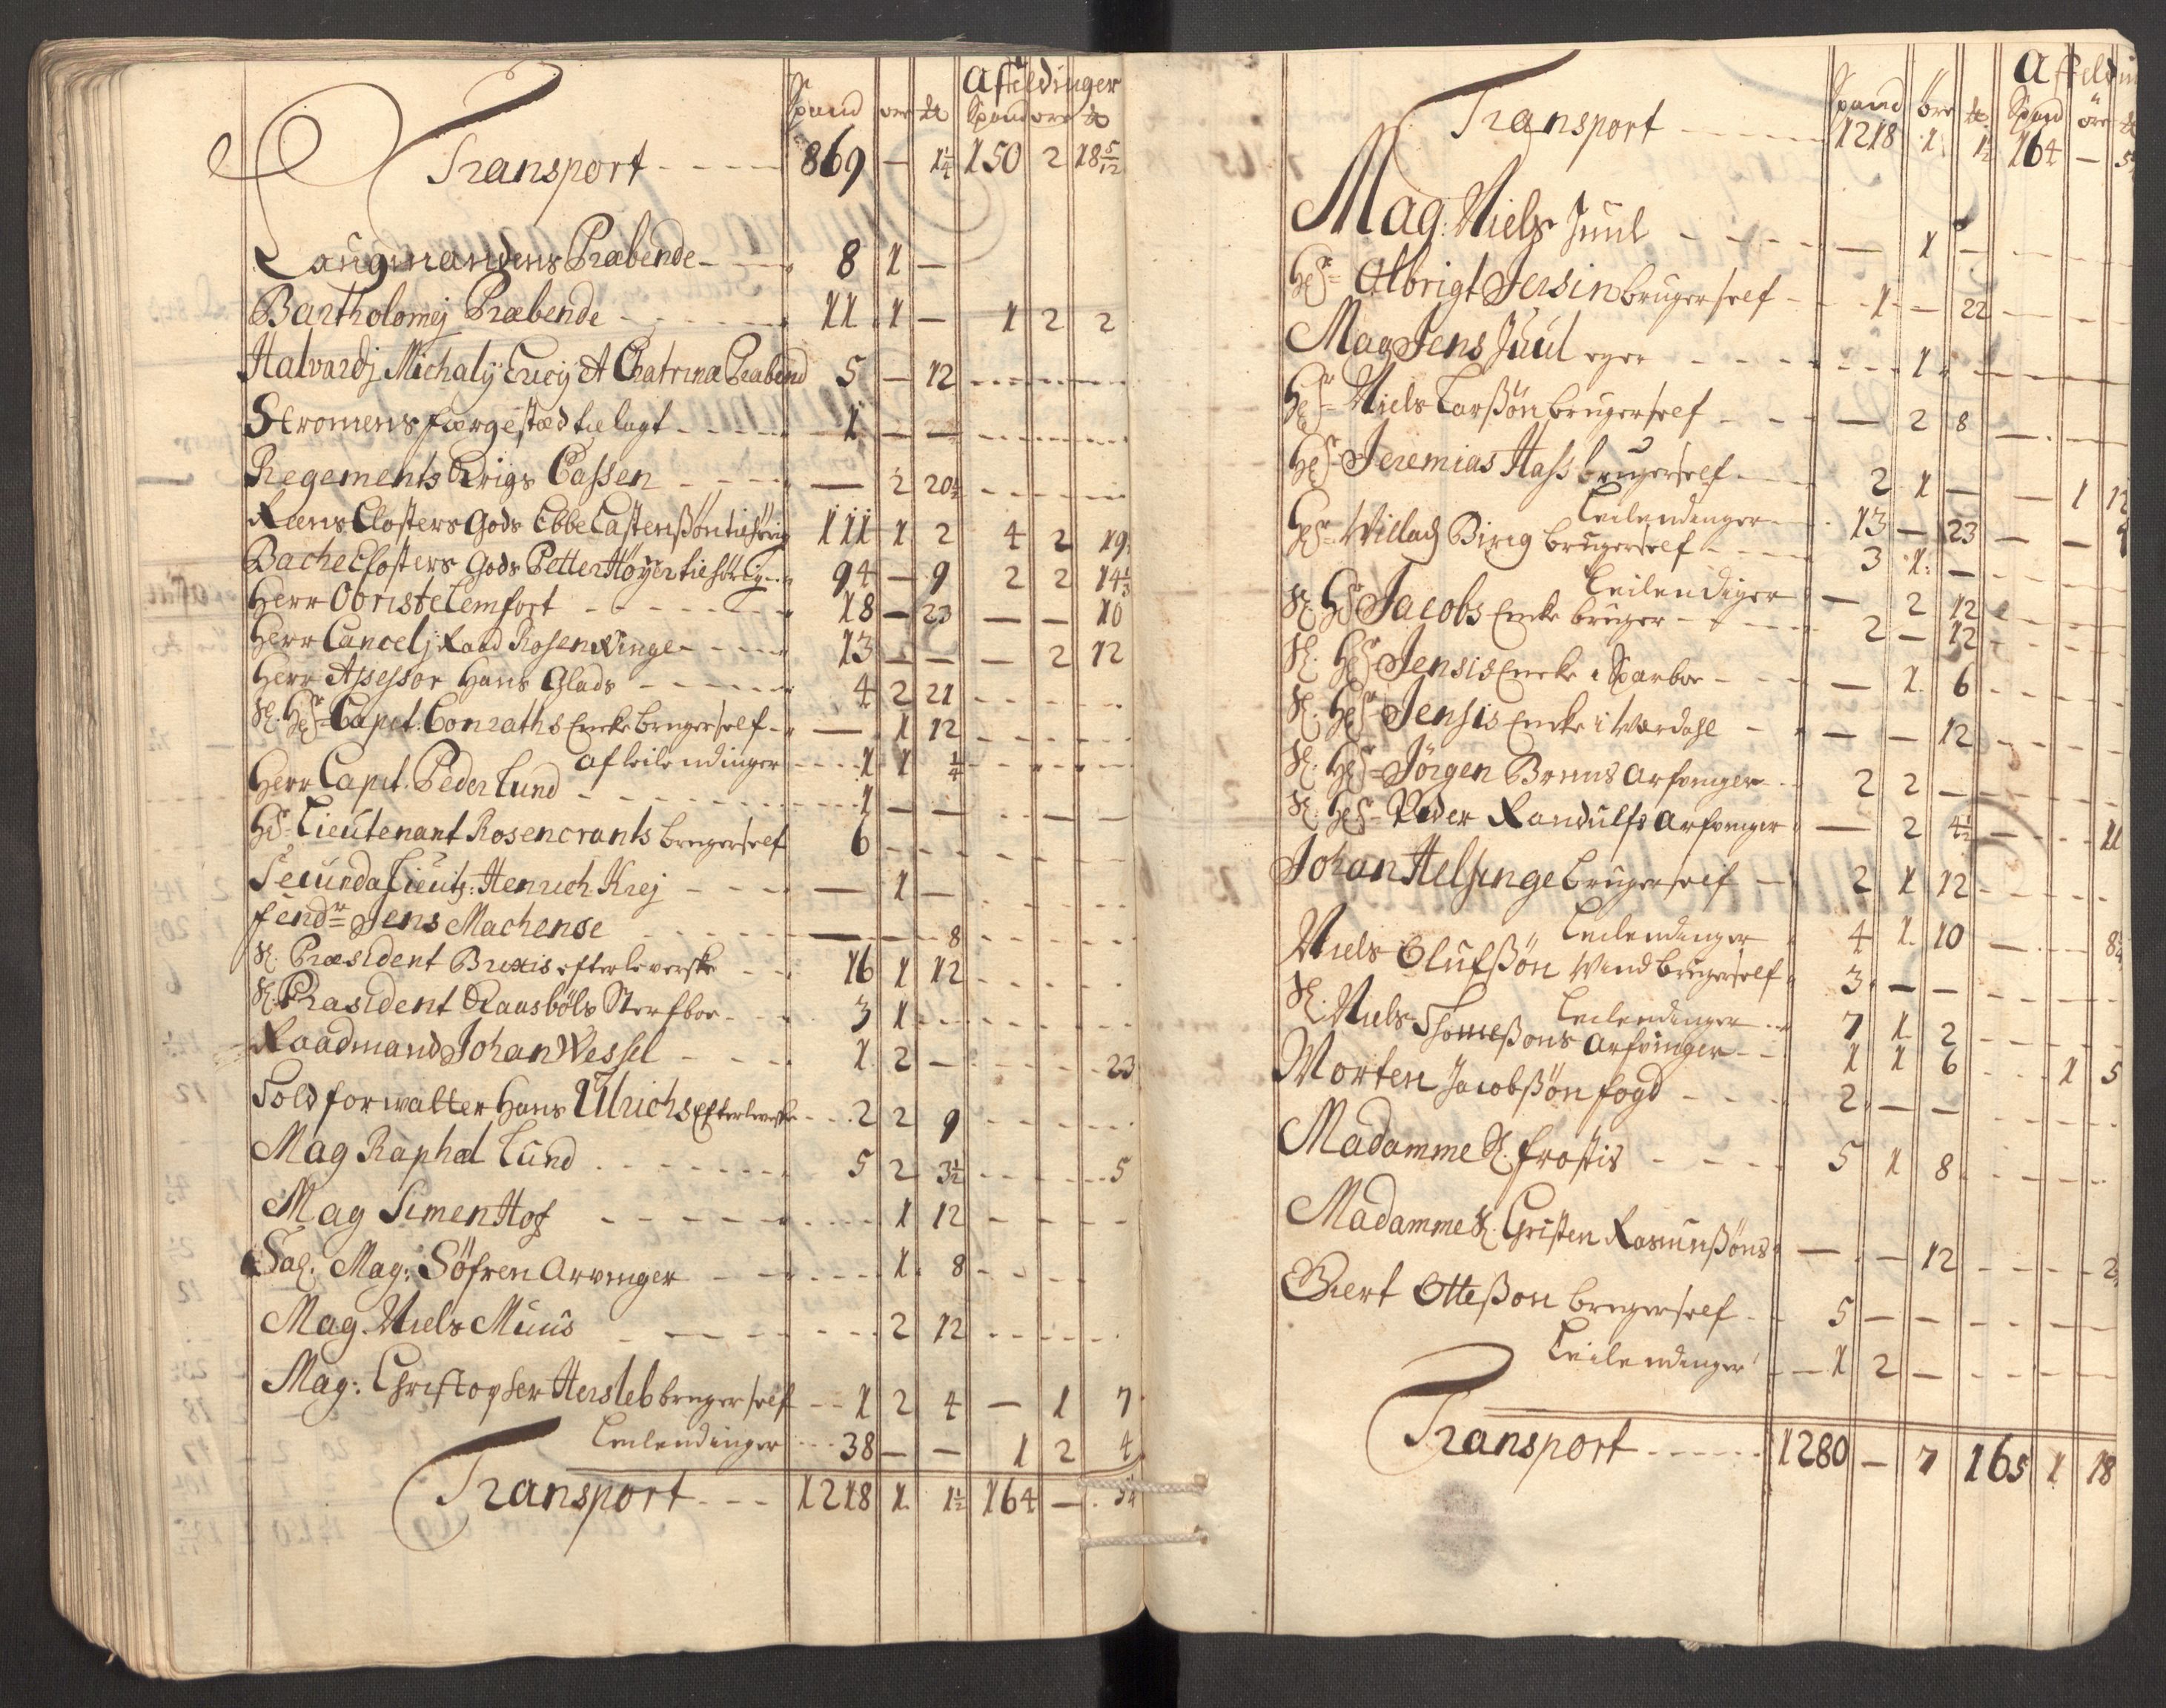 Affeldinger
Spand ore ₶ Spand ore ₶
Transport - - - - 869 — 1¼ 150 2 18 5/12
Laugmandens Præbende - - - 8 1 —
Bartholomej Præbende - - - - 11 1 — 1 2 2
Halvardj Michalij Ericij et Chatrina Præbend 5 — 12
Stromens færgestæd tillagt - - - - 1 — —
Regements Krigs Cassen - - - - — 2 20½
Reens Closters Gods Ebbe Castenssøn tilhørig 111 1 2 4 2 19
Bache Closters Gods Petter Høyer tilhørig 94 — 9 2 2 14⅓
Herr Obriste Lemfort - - - - 18 — 23 — — 10
Herr Cancelj Raad Rosenvinge - - - - 13 — — — 2 12
Herr Assessor Hans Glads - - - - 4 2 21
Sl. Hr Capt. Conraths Encke bruger self - — 1 12
af leilendinger - - - 1 1 ¼
Herr Capit. Peder Lund - - - - 1 — — — —
Hr Lieutenant Rosencrants bruger self 6
Secunda Lieutj: Henrich Krej - - - - — 1 —
Fendr Jens Machense - - - - — — 8
Sl. Præsident Brexis efterleverske - - 16 1 12
Sl. Præsident Raasböls Sterfboe - - - 3 1
Raadmand Johan Wessel - - - 1 2 — 23
Toldforwalter Hans Ulrichs Efterleverske - - - 2 2 9
Mag Raphel Lund - - - - 5 2 3½ 5
Mag Simen Hof - - - - 1 12
Sal. Mag: Söfren Arvinger - - - - 1 8
Mag. Niels Muus - - - - 2 12
Mag: Christopher Hersleb bruger self - - 1 2 4 — 1 7
Leilendinger - - - 38 — — 1 2 4
Transport - - - 1218 1 1½ 164 —
Spand öre ₶ Spand öre
Transport - - - - 1218 1 1½ 164 —
Mag: Niels Juul - - - - — 1 —
Hr Albrigt Jersin bruger self - - 1 — 22
Mag Jens Juul eger - - - - 1
Hr Niels Larssøn bruger self - - - — 2 8
Hr Jeremias Hass bruger self - - - 2 1 — — 1 12
Leilendinger - - 13 — 23 — —
Hr Willads Bireg bruger self - - - 3 1 —
Leilendiger — 2 12
Sl. Hr Jacobs Encke bruger - - - 2 — 12
Sl. Hr Jensis Encke i Sparboe - - - — 1 6
Sl. Hr Jensis Encke i Werdahl - - — — 12
Sl. Hr Jörgen Bruns Arfvinger - - 2 2 —
Sl. Hr Peder Randulfs Arfvinger — 2 4½ — 11
Johan Helsinge bruger self — 2 1 12
Leilendinger 4 1 10 —
Niels Olufssön Wind bruger self 3 — —
Leilendinger - - 7 1 2
Sl. Niels Thomessøns Arfvinger - - 1 1 6 1 5
Morten Jacobssøn fogd - - - - 2 — —
Madamme Sl. Frostis - - - - 5 1 8
Madamme Sl. Christen Rasmussøns — — 12 2
Giert Ottesson bruger self - - 5 — —
Leilendinger - - 1 2 —
Transport - - - - 1280 — 7 165 1 18